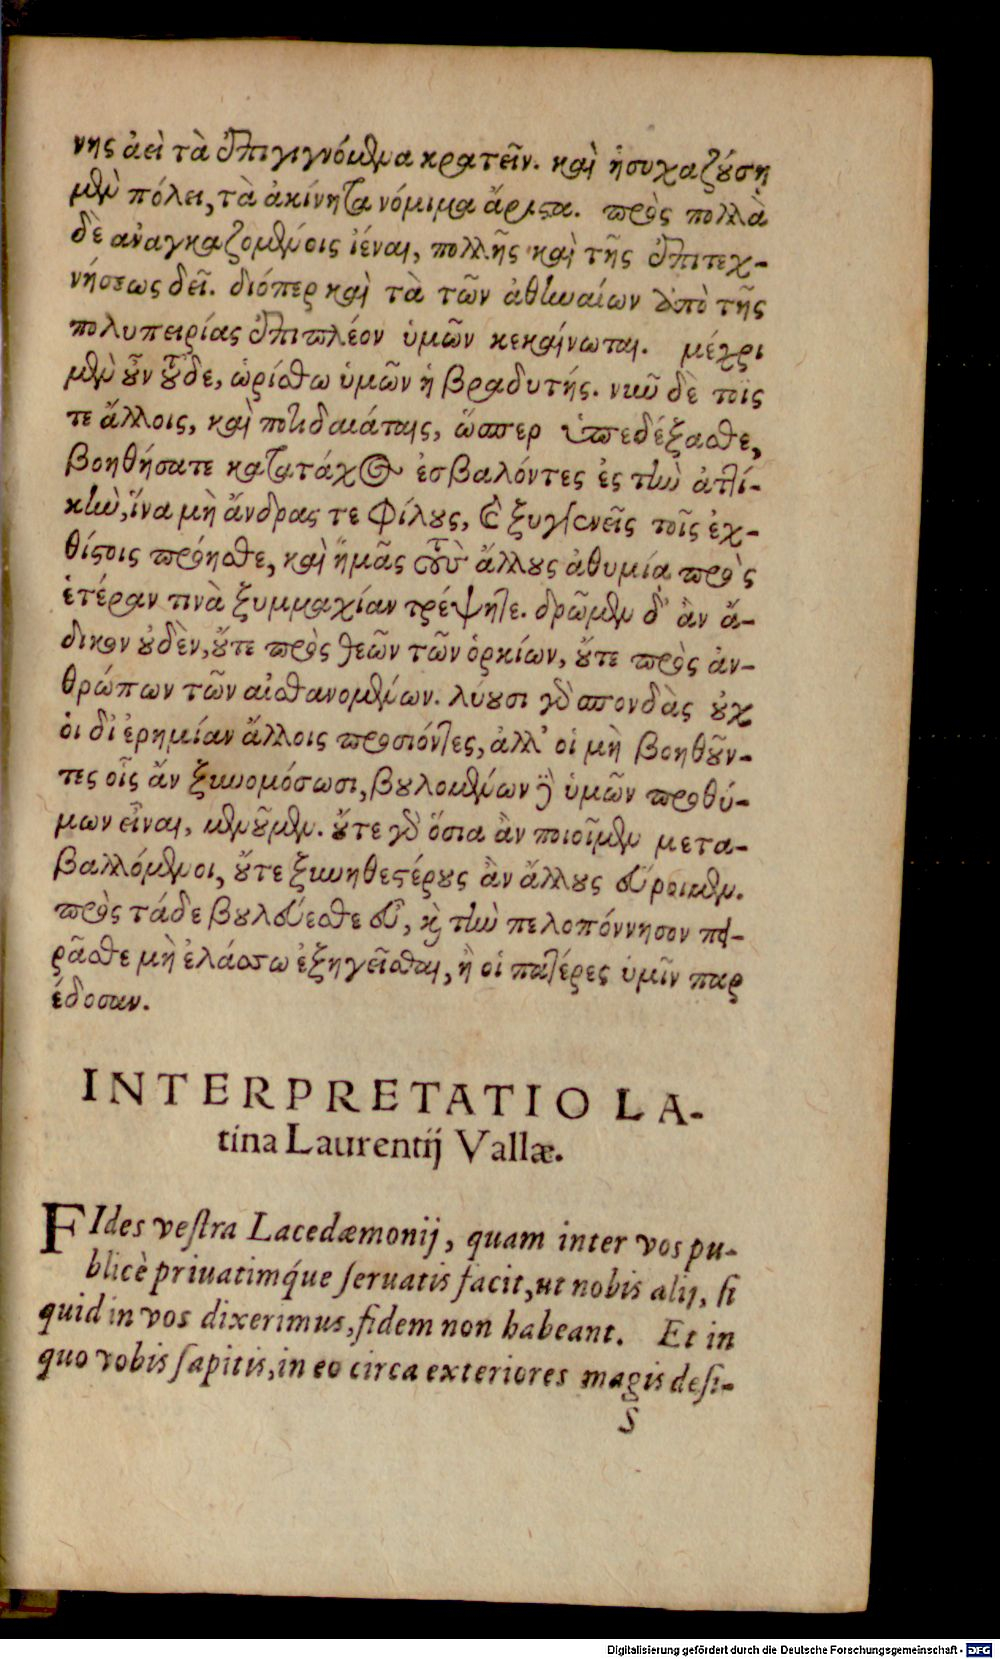 νης ἀεὶ τὰ ἐπιγιγνόμενα κρατεῖν. καὶ ἡσυχαζούσῃ
μὲν πόλει, τὰ ἀκίνητα νόμιμα ἄριστα. πρὸς πολλὰ
δὲ αναγκαζομένοις ἰέναι, πολλῆς καὶ τῆς ἐπιτεχ-
νήσεως δεῖ. διόπερ καὶ τὰ τῶν ἀθηναίων ἀπὸ τῆς
πολυπειρίας ἐπιπλέον ὑμῶν κεκαίνωται. μέχρι
μὲν οὖν τοῦδε, ὡρίσθω ὑμῶν ἡ βραδυτής. νῦν δὲ τοῖς
τε ἄλλοις, καὶ ποτιδαιάταις, ὥσπερ ὑπεδέξασθε,
βοηθήσατε κατατάχος ἐσβαλόντες ἐς τὴν ἀττι-
κὴν, ἵνα μὴ ἄνδρας τε φίλους, καὶ ξυγγενεῖς τοῖς ἐχ-
θίστοις πρόησθε, καὶ ἡμᾶς τοὺς ἄλλους ἀθυμία πρὸς
ἑτέραν τινὰ ξυμμαχίαν τρέψητε. δρῶμεν δ' ἂν ἄ-
δικον οὐδὲν, οὔτε πρὸς θεῶν τῶν ὁρκίων, οὔτε πρὸς ἀν-
θρώπων τῶν αἰσθανομένων. λύουσι γὰρ σπονδὰς οὐχ
ὁι δι' ἐρημίαν ἄλλοις προσιόντες, ἀλλ' οἱ μὴ βοηθοῦν-
τες οἷς ἄν ξυνομόσωσι, βουλομένων δὲ ὑμῶν προθύ-
μων εἶναι, μενοῦμεν. οὔτε γὰρ ὅσια ἂν ποιοῖμεν μετα-
βαλλόμενοι, οὔτε ξυνηθεστέρους ἂν ἄλλους εὕροιμεν.
πρὸς τάδε βουλεύεσθε εὖ, καὶ τὴν πελοπόννησον πει-
ρᾶσθε μὴ ἐλάσσω ἐξηγεῖσθαι, ἢ οἱ πατέρες ὑμῖν παρ
έδοσαν.
INTERPRETATIO LA-
tina Laurentij Vallæ.
FIdes vestra Lacedæmonij, quam inter vos pu-
blicè priuatimq́ue seruatis facit, ut nobis alij, si
quid in vos dixerimus, fidem non habeant. Et in
quo vobis sapitis, in eo circa exteriores magis desi-
S
Digitalisierung gefördert durch die Deutsche Forschungsgemeinschaft - DFG